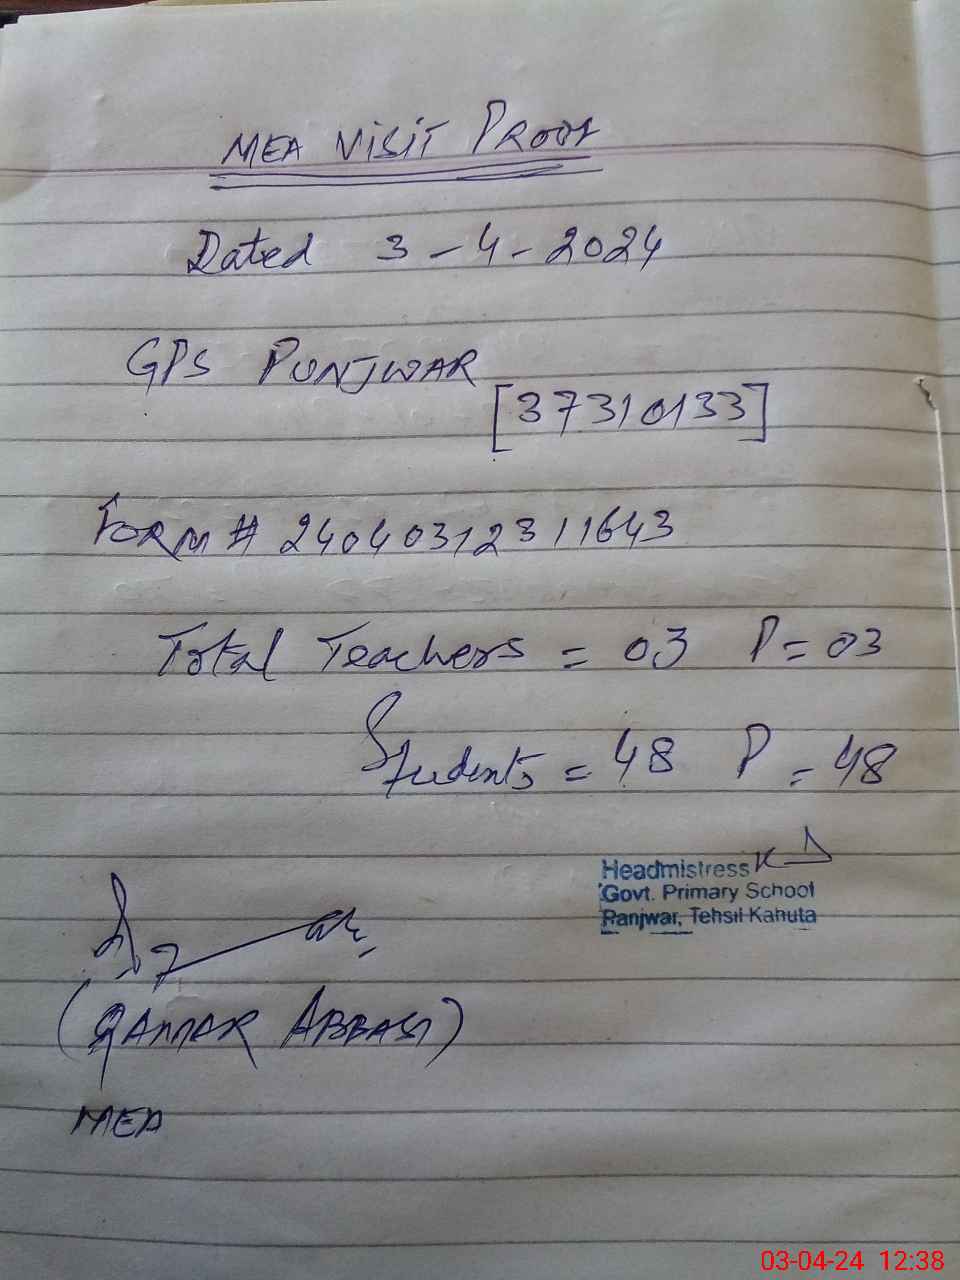 MEA VISIT PROOF
Dated 3-4-2024
GPS PUNJWAR
[37310133]
FORM # 24040312311643
Total Teachers = 03 P = 03
Students = 48 P = 48
Headmistress
Govt. Primary School
Ranjwar, Tehsil Kahuta
(QAMAR ABBASI)
MEA
03-04-24 12:38